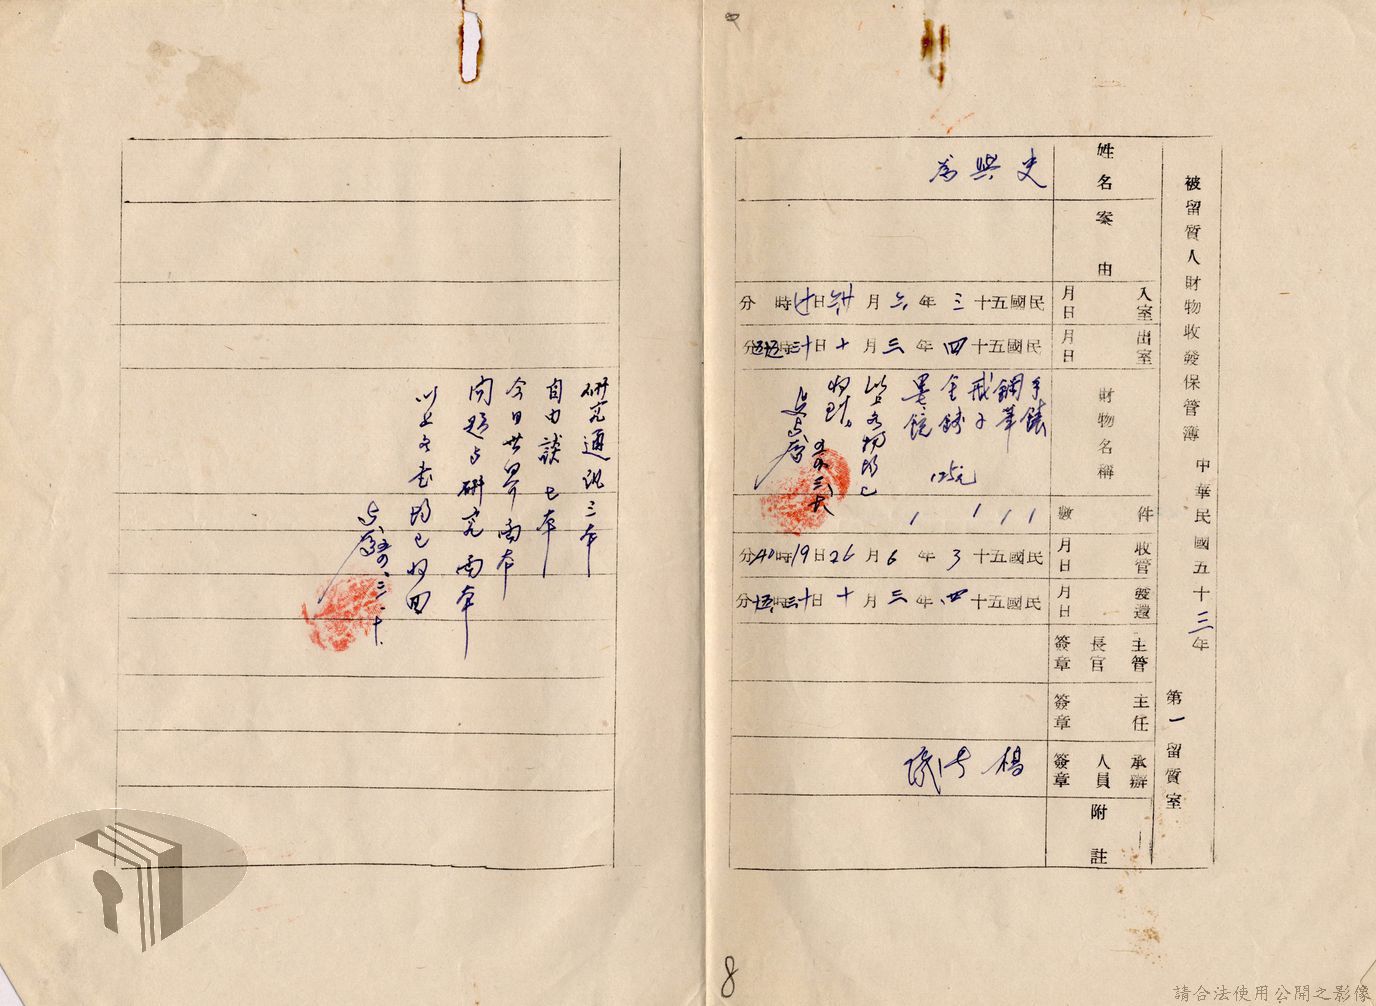 被留質人財物收發保管簿 中華民國五十三年 第一留質室
姓名
史與為
案由
入室月日
民國五十三年六月廿六日十時 分
出室月日
民國五十四年三月十日十三時五十五分
財物名稱
手錶
鋼筆
戒子
金錢 125元
墨鏡
以上各物均已
收到。
五四、三、十
件數
1
1
1
1
收管月日
民國五十3年6月26日19時40分
發還月日
民國五十四年三月十日十三時五十五分
主管長官簽章
主任簽章
承辦人員簽章
楊
附註
研究通訊三本
自由談七本
今日世界兩本
問題與研究兩本
以上各書均已收回
五四、三、十、
8
請合法使用公開之影像